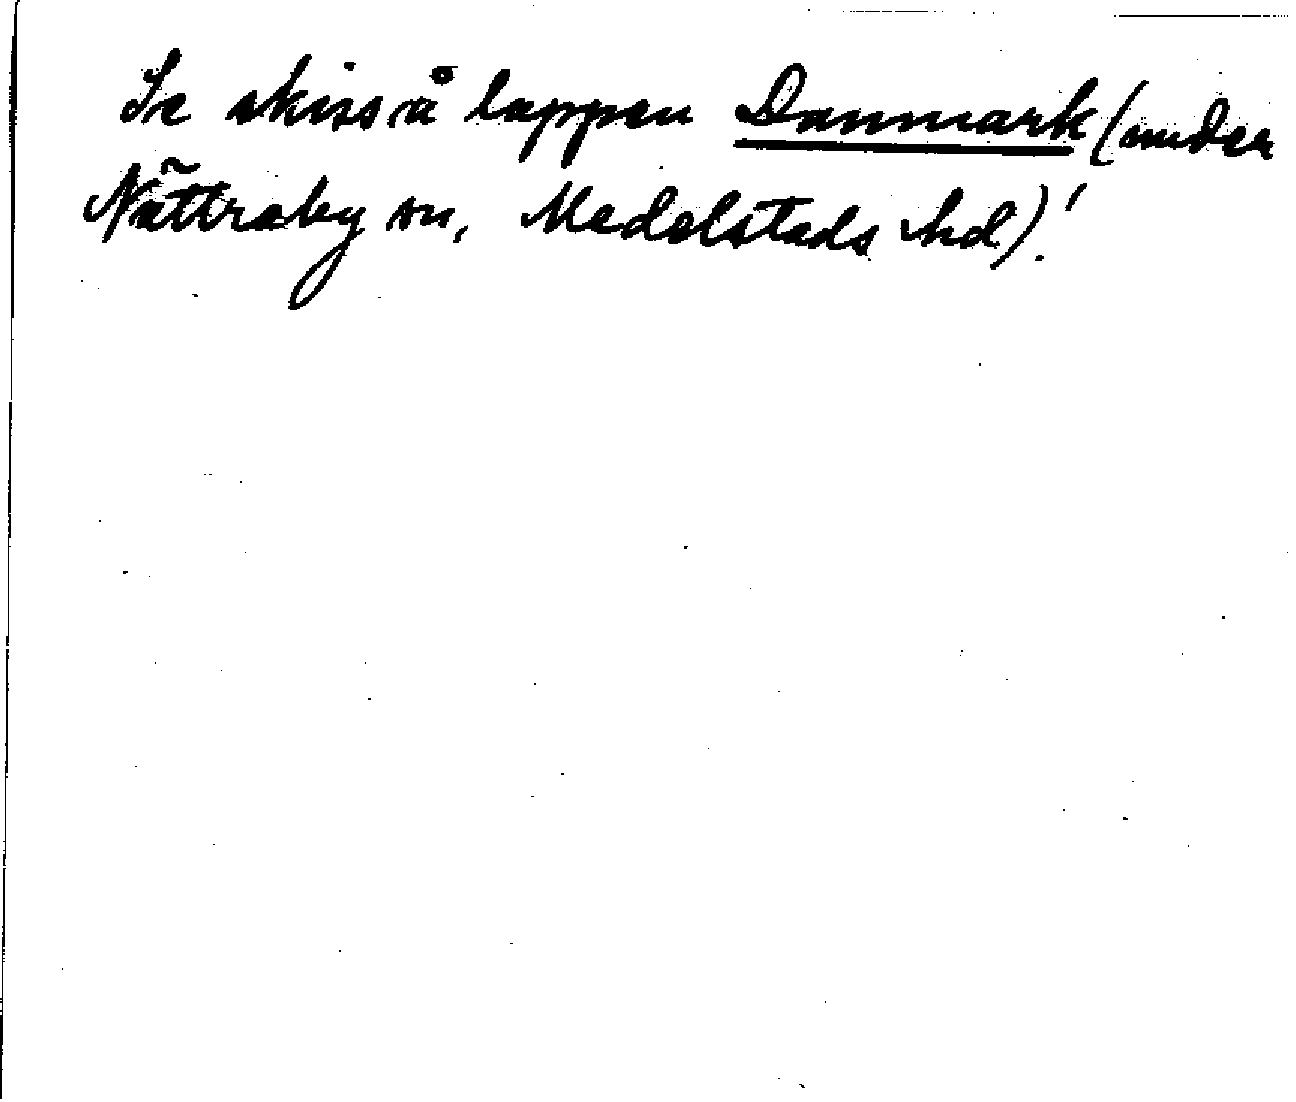 Se skiss å lappen Danmark (under
Nättraby sn, Medelstads hd)!